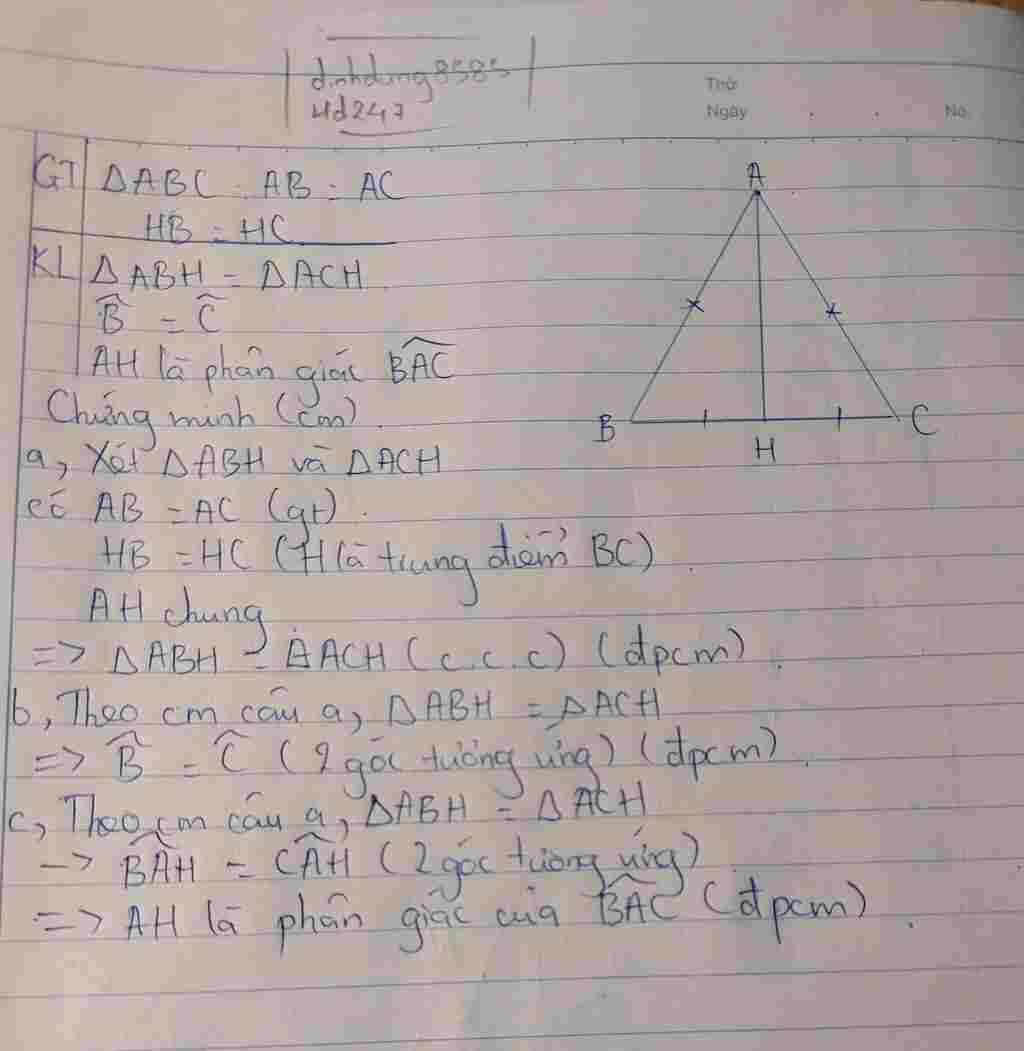 dinhdung8585
Hd247
Thứ
Ngày . . No.
GT ΔABC AB = AC
HB = HC
KL ΔABH = ΔACH
B̂ = Ĉ
AH là phân giác BAC
Chứng minh (cm)
a, Xét ΔABH và ΔACH
có AB = AC (gt).
HB = HC (H là trung điểm BC).
AH chung
=> ΔABH = ΔACH (c.c.c) (đpcm).
b, Theo cm câu a, ΔABH = ΔACH
=> B̂ = Ĉ (2 góc tương ứng) (đpcm).
c, Theo cm câu a, ΔABH = ΔACH
-> BÂH = CÂH (2 góc tương ứng)
=> AH là phân giác của BAC (đpcm).
A
B
H
C